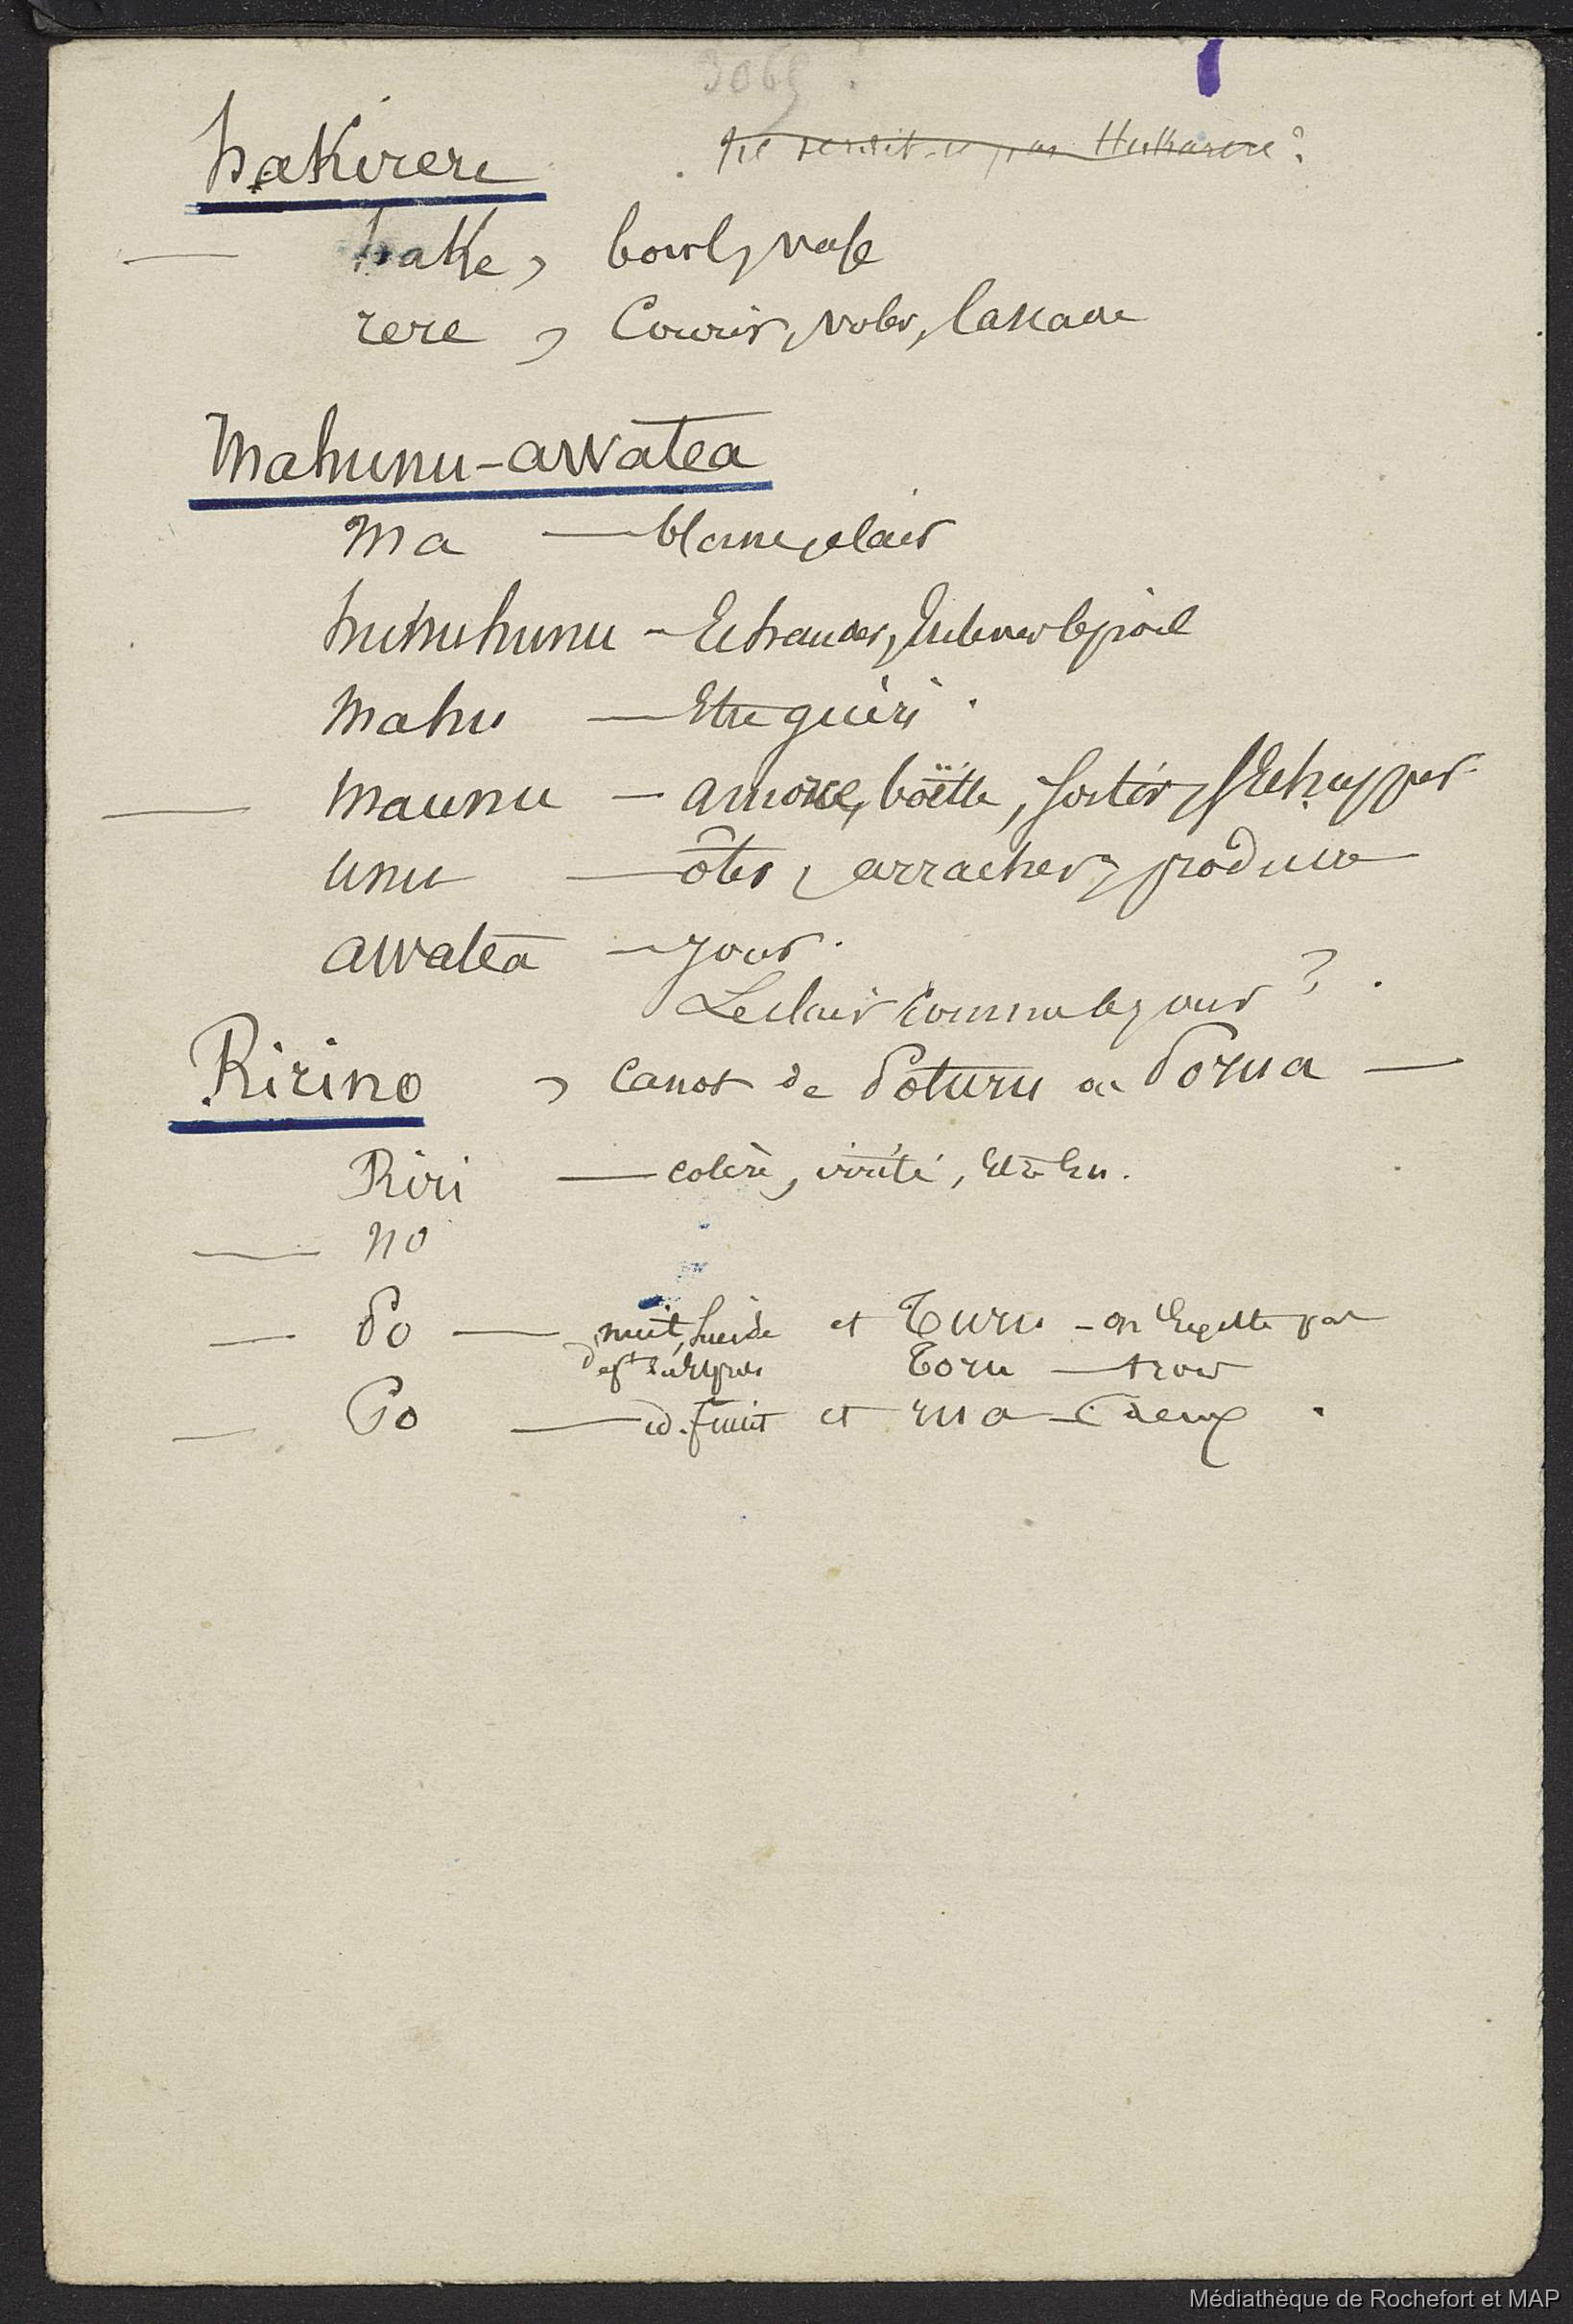 3065
hakirere
ne serait-ce pas Hukarere ?
— hake, bowl, vase
rere, courir, voler, cascade
Mahunu-awatea
Ma — blanc, clair
huhuhunu — Echauder, Enlever le poil
Mahu — Etre guéri.
— Maunu — amorce, boëtte, sortir, s'Echapper
unu — ôter, arracher, produire
awatea — jour.
Le clair comme le jour ?
Ririno, canot de Poturu ou Porua —
Riri — colère, irrité, Etre En.
— no
— Po — nuit, et Turu — on par
Toru — trois
— Po — id. et rua — deux.
Médiathèque de Rochefort et MAP